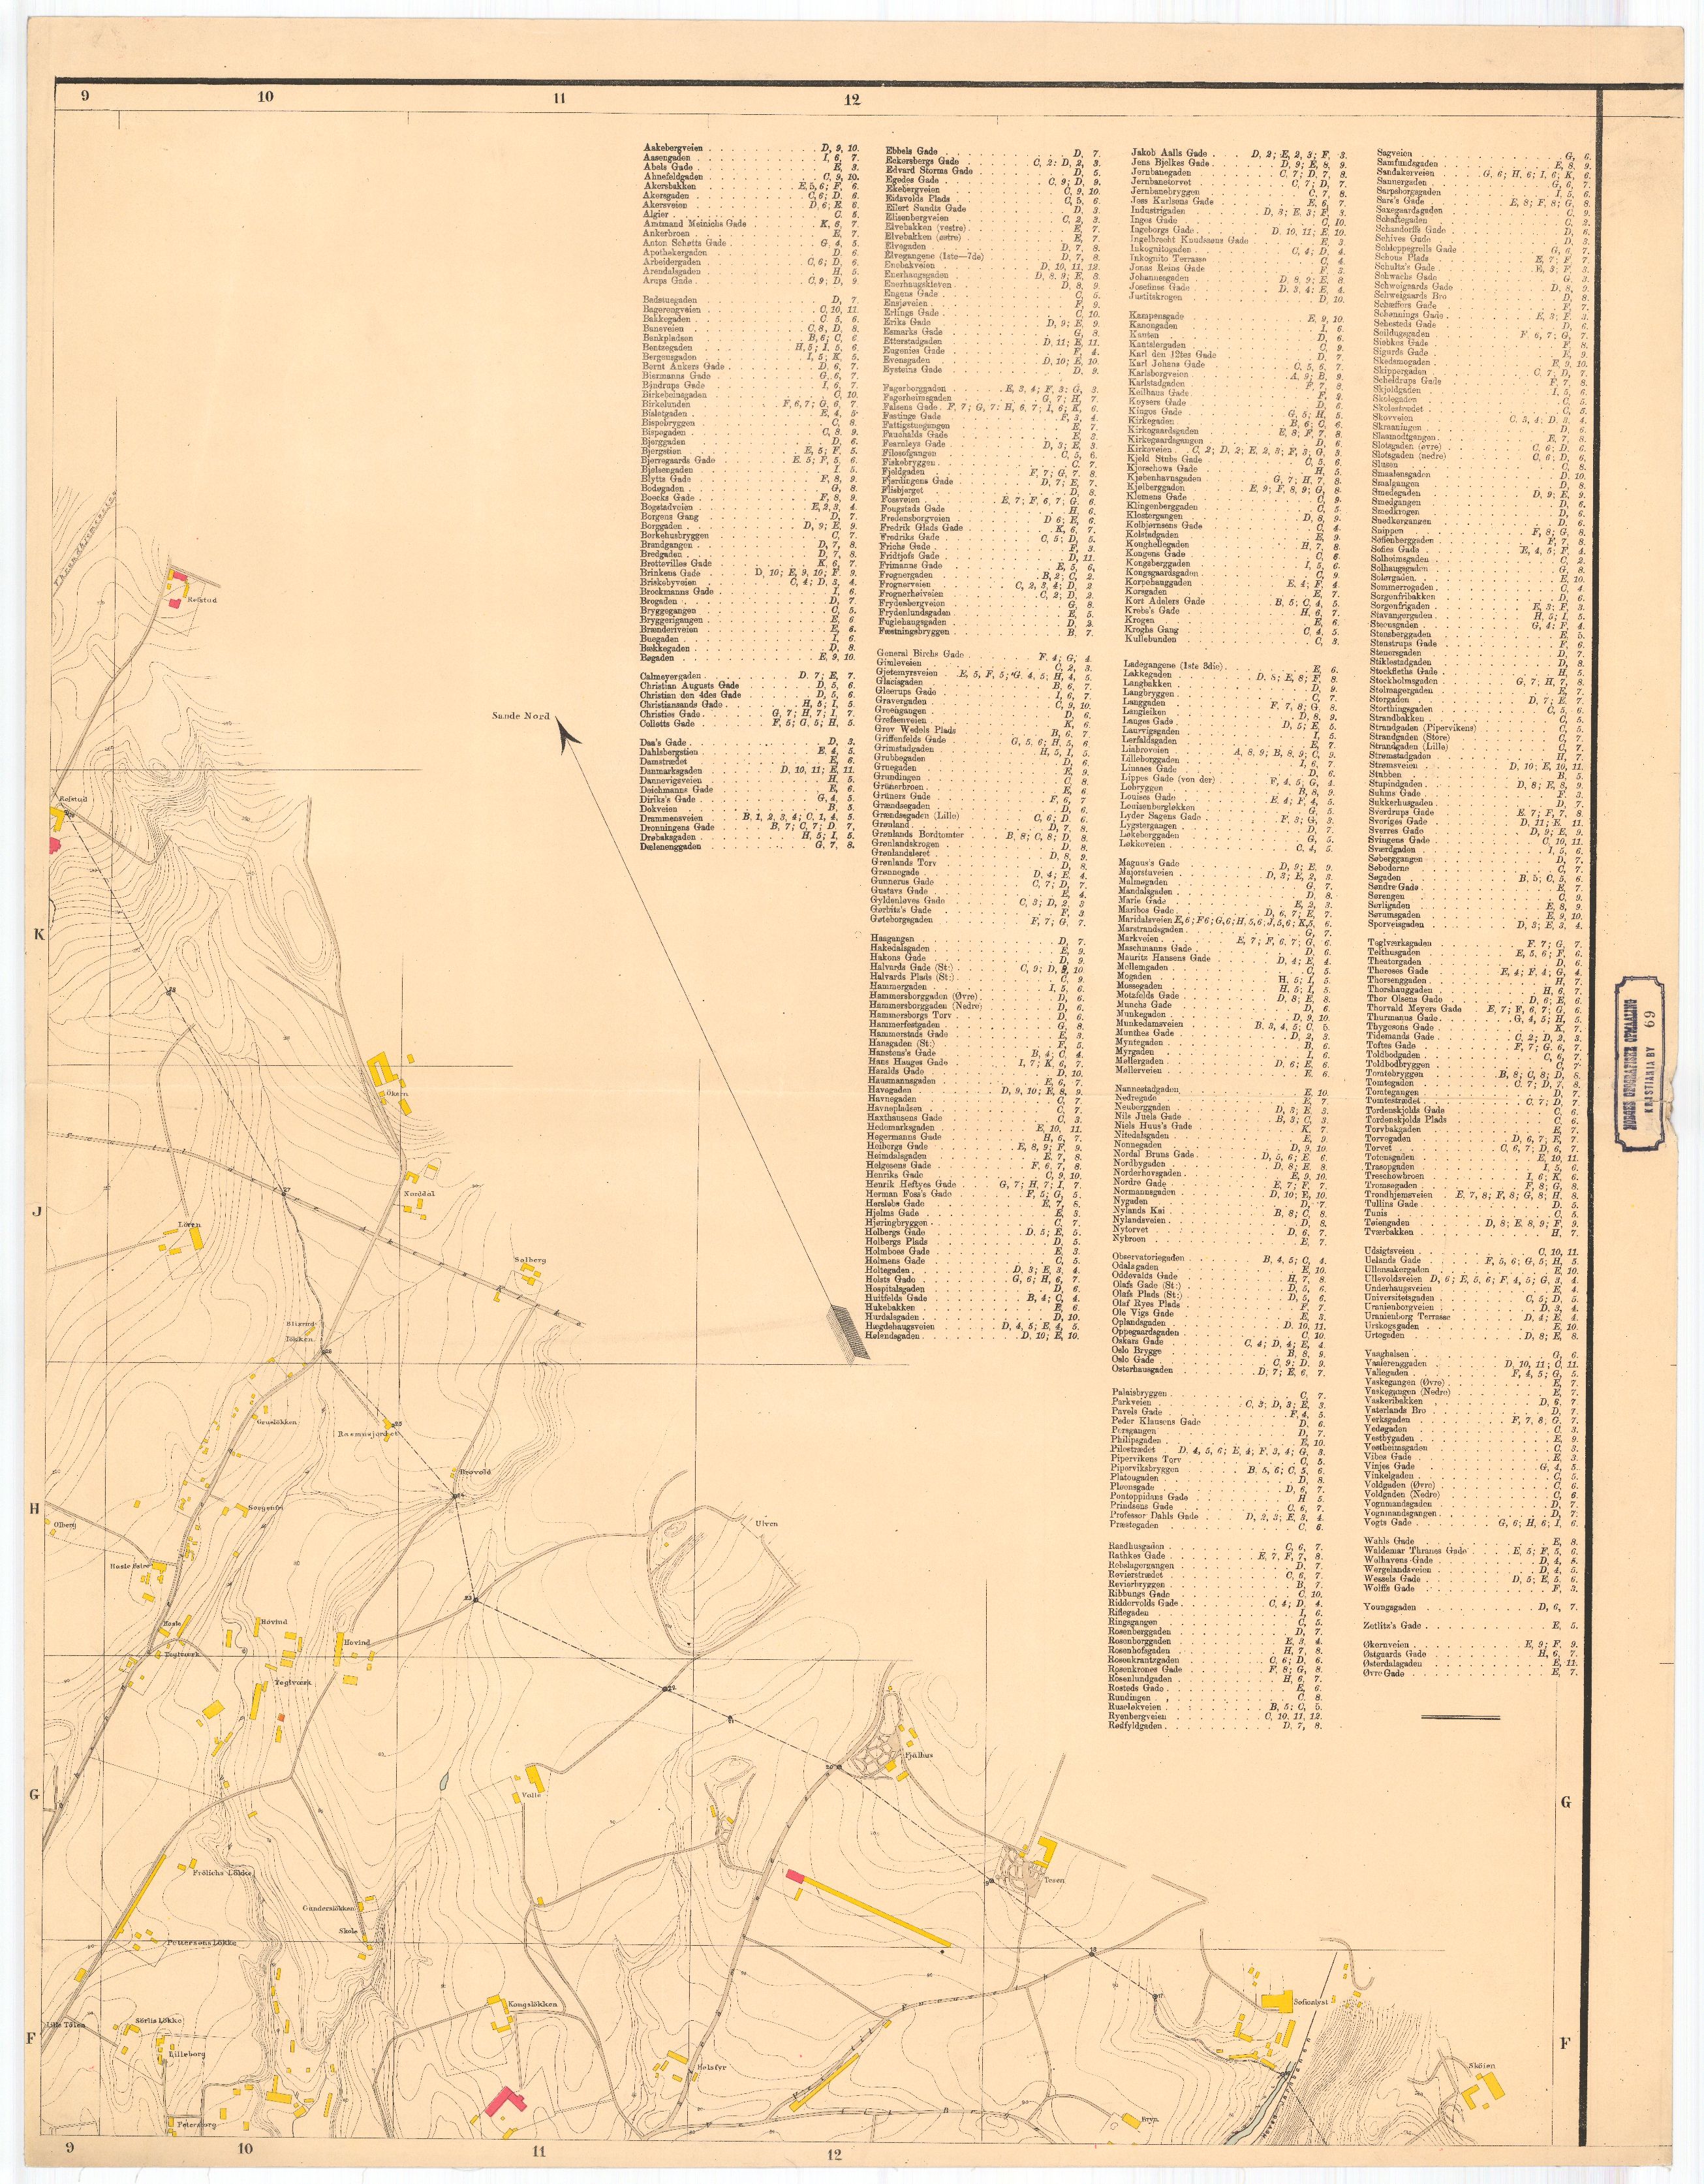 9 10 11 12
Aakebergveien D, 9, 10.
Aasengaden I, 6, 7.
Abels Gade E, 3.
Ahnefeldgaden C, 9, 10.
Akersbakken E, 5, 6; F, 6.
Akersgaden C, 6; D, 6.
Akersveien D, 6; E, 6.
Algier C, 5.
Amtmand Meinichs Gade K, 6, 7.
Ankerbroen E, 7.
Anton Schøtts Gade G, 4, 5.
Apothekergaden D, 6.
Arbeidergaden C, 6; D, 6.
Arendalsgaden H, 5.
Arups Gade C, 9; D, 9
Badstuegaden D, 7.
Bagerengveien C, 10, 11.
Bakkegaden C, 5, 6.
Baneveien C, 8, D, 8.
Bankpladsen B, 6; C, 6
Bentzegaden H, 5; I, 5, 6.
Bergensgaden I, 5; K, 5.
Bernt Ankers Gade D, 6, 7.
Biermanns Gade G, 6, 7.
Bindrups Gade I, 6, 7.
Birkebeinsgaden C, 10.
Birkelunden F, 6, 7; G, 6, 7.
Bisletgaden E, 4, 5.
Bispebryggen C, 8.
Bispegaden C, 8, 9.
Bjerggaden D, 6.
Bjergstien E, 5; F, 5.
Bjerregaards Gade E, 5; F, 5, 6.
Bjølsengaden I, 5.
Blytts Gade F, 8, 9.
Bodøgaden G, 8.
Boecks Gade F, 8, 9.
Bogstadveien E, 2, 3, 4.
Borgens Gang D, 7.
Borggaden D, 9; E, 9.
Børkehusbryggen C, 7.
Brandgangen D, 7, 8.
Bredgaden D, 7, 8.
Brettevilles Gade K, 6, 7.
Brinkens Gade D, 10; E, 9, 10; F, 9.
Briskebyveien C, 4; D, 3, 4.
Brockmanns Gade I, 6.
Brogaden D, 7.
Bryggegangen C, 5.
Bryggerigangen E, 6
Brænderiveien E, 6.
Buegaden I, 6.
Bækkegaden D, 8.
Bøgaden E, 9, 10.
Calmeyergaden D, 7; E, 7.
Christian Augusts Gade D, 5, 6.
Christian den 4des Gade D, 5, 6.
Christiansands Gade H, 5; I, 5.
Christies Gade G, 7; H, 7; I, 7.
Colletts Gade F, 5; G, 5; H, 5.
Daa's Gade D, 3.
Dahlsbergstien E, 4, 5.
Damstrædet E, 6.
Danmarksgaden D, 10, 11; E, 11.
Dannevigsveien H, 5.
Deichmanns Gade E, 6.
Dirika's Gade G, 4, 5.
Dokveien B, 5.
Drammensveien B, 1, 2, 3, 4; C, 1, 4, 5.
Dronningens Gade B, 7; C, 7; D, 7.
Drøbaksgaden H, 5; I, 5.
Dælenenggaden G, 7, 8.
Ebbels Gade D, 7.
Eckersbergs Gade C, 2; D, 2, 3.
Edvard Storms Gade D, 5.
Egedes Gade C, 9; D, 9.
Ekebergveien C, 9, 10.
Eidsvolds Plads C, 5, 6.
Eilert Sundts Gade D, 3.
Elisenbergveien C, 2, 3.
Elvebakken (vestre) E, 7.
Elvebakken (østre) E, 7.
Elvegaden D, 7, 8.
Elvegangene (1ste—7de) D, 7, 8.
Enebakveien D, 10, 11, 12.
Enerhaugsgaden D, 8, 9; E, 8.
Enerhaugskleven D, 8, 9.
Engens Gade C, 5.
Ensjøveien F, 9.
Erlings Gade C, 10.
Eriks Gade D, 9; E, 9.
Esmarks Gade G, 8.
Etterstadgaden D, 11; E, 11.
Eugenies Gade F, 4.
Evensgaden D, 10; E, 10.
Eysteins Gade D, 9.
Fagerborggaden E, 3, 4; F, 3; G, 3.
Fagerheimsgaden G, 7; H, 7.
Falsens Gade F, 7; G, 7; H, 6, 7; I, 6; K, 6.
Fastings Gade F, 3, 4.
Fattigstuegangen E, 7.
Fauchalds Gade E, 3.
Fearnleys Gade D, 3; E, 3.
Filosofgangen C, 5, 6.
Fiskebryggen C, 7.
Fjeldgaden F, 7; G, 7, 8.
Fjerdingens Gade D, 7; E, 7.
Flisbjerget D, 8.
Fossveien E, 7; F, 6, 7; G, 6.
Fougstads Gade H, 6.
Fredensborgveien D 6; E, 6.
Fredrik Glads Gade K, 6, 7.
Fredriks Gade C, 5; D, 5.
Frichs Gade F, 3.
Fridtjofs Gade D, 11.
Frimanns Gade E, 5, 6,
Frognergaden B, 2; C, 2.
Frognerveien C, 2, 3, 4; D, 2
Frognerheiveien C, 2; D, 2.
Frydenbergveien G, 8.
Frydenlundsgaden E, 5.
Fuglehaugsgaden D, 3.
Fæstningsbryggen B, 7.
General Birchs Gade F, 4; G, 4.
Gimleveien C, 2, 3.
Gjetemyrsveien E, 5, F, 5; G, 4, 5; H, 4, 5.
Glacisgaden B, 6, 7.
Gleerups Gade I, 6, 7.
Gravergaden C, 9, 10.
Groengangen D, 6.
Grefsenveien K, 6.
Grev Wedels Plads B, 6, 7.
Griffenfelds Gade G, 5, 6; H, 5, 6.
Grimstadgaden H, 5, I, 5.
Grubbegaden D, 6.
Gruegaden E, 9.
Grundingen C, 8.
Grünerbroen E, 6.
Grüners Gade F, 6, 7
Grændsegaden D, 6.
Grændsegaden (Lille) C, 6; D, 6.
Grønland D, 7, 8.
Grønlands Bordtomter B, 8; C, 8; D, 8.
Grønlandskrogen D, 8.
Grønlandsleret D, 8, 9.
Grønlands Torv D, 8.
Grønnegade D, 4; E, 4.
Gunnerus Gade C, 7; D, 7.
Gustavs Gade E, 4.
Gyldenløves Gade C, 3; D, 2, 3
Gørbitz's Gade F, 3
Gøteborgsgaden F, 7; G, 7.
Haagangen D, 7.
Hakedalsgaden E, 9.
Hakons Gade D, 9.
Halvards Gade (St:) C, 9; D, 9, 10.
Halvards Plads (St:) C, 9.
Hammergaden I, 5, 6.
Hammersborggaden (Øvre) D, 6.
Hammersborggaden (Nedre) D, 6.
Hammersborgs Torv D, 6.
Hammerfestgaden G, 8.
Hammerstads Gade E, 3.
Hansgaden (St:) F, 5.
Hansteens's Gade B, 4; C, 4.
Hans Hauges Gade I, 7; K, 6, 7.
Haralds Gade D, 10.
Hausmannsgaden E, 6, 7.
Havegaden D, 9, 10; E, 8, 9.
Havnegaden C, 7.
Havnepladsen C, 7.
Haxthausens Gade C, 3.
Hedemarksgaden E, 10, 11.
Hegermanns Gade H, 6, 7.
Heibergs Gade E, 8, 9; F, 9.
Heimdalsgaden E, 7, 8.
Helgesens Gade F, 6, 7, 8.
Henriks Gade C, 9, 10.
Henrik Heftyes Gade G, 7; H, 7; I, 7.
Herman Foss's Gade F, 5; G, 5.
Herslebs Gade E, 7, 8.
Hjelms Gade E, 3.
Hjøringbryggen C, 7.
Holbergs Gade D, 5; E, 5.
Holbergs Plads D, 5.
Holmboes Gade E, 3.
Holmens Gade C, 5.
Holtegaden D, 3; E, 3, 4.
Holsts Gade G, 6; H, 6, 7.
Hospitalsgaden D, 6.
Huitfelds Gade B, 4; C, 4.
Hukebakken E, 6.
Hurdalsgaden D, 10.
Hægdehaugsveien D, 4, 5; E, 4, 5.
Hølendsgaden D, 10; E, 10.
Jakob Aalls Gade D, 2; E, 2, 3; F, 3.
Jens Bjelkes Gade D, 9; E, 8, 9.
Jernbanegaden C, 7; D, 7, 8.
Jernbanetorvet C, 7; D, 7.
Jernbanebryggen C, 7, 8.
Jess Karlsens Gade E, 6, 7.
Industrigaden D, 3; E, 3; F, 3.
Inges Gade C, 10.
Ingeborgs Gade D, 10, 11; E, 10.
Ingelbrecht Knudssøns Gade E, 3.
Inkognitogaden C, 4; D, 4.
Inkognito Terrasse C, 4.
Jonas Reins Gade F, 3.
Johannesgaden D, 8, 9; E, 8.
Josefines Gade D, 3, 4; E, 4.
Justitskrogen D, 10.
Kampensgade E, 9, 10.
Kanongaden I, 6.
Kanten D, 6.
Kantslergaden C, 9.
Karl den 12tes Gade D, 7.
Karl Johans Gade C, 5, 6, 7.
Karlsborgveien A, 9; B, 9.
Karlstadgaden F, 7, 8.
Keilhaus Gade F, 9.
Keysers Gade D, 6.
Kingos Gade G, 5; H, 5.
Kirkegaden B, 6; C, 6.
Kirkegaardsgaden E, 8; F, 7, 8.
Kirkegaardsgangen D, 6.
Kirkeveien C, 2; D, 2; E, 2, 3; F, 3; G, 3.
Kjeld Stubs Gade C, 5, 6.
Kjerschows Gade H, 5.
Kjøbenhavnsgaden G, 7; H, 7, 8.
Kjølberggaden E, 9; F, 8, 9; G, 8.
Klemens Gade C, 9.
Klingenberggaden C, 5.
Klostergangen D, 8, 9.
Kolbjørnsens Gade C, 4.
Kolstadgaden E, 9.
Konghellegaden H, 7, 8.
Kongens Gade C, 6.
Kongsberggaden I, 5, 6.
Kongsgaardsgaden C, 9.
Korpehauggaden E, 4; F, 4.
Korsgaden E, 7.
Kort Adelers Gade B, 5; C, 4, 5.
Krebs's Gade H, 6, 7.
Krogen E, 6.
Kroghs Gang C, 4, 5.
Kullebunden C, 3.
Ladegangene (1ste 3die) E, 6.
Lakkegaden D, 8; E, 8; F, 8.
Langbakken D, 9.
Langbryggen C, 7.
Langgaden F, 7, 8; G, 8.
Langleiken D, 8, 9.
Langes Gade D, 5; E, 5.
Laurvigsgaden I, 5.
Lerfaldsgaden E, 7.
Liabroveien A, 8, 9; B, 8, 9; C, 9.
Lilleborggaden I, 6, 7.
Linnaes Gade D, 6.
Lippes Gade (von der) F, 4, 5, G, 4.
Lobryggen B, 8, 9.
Louises Gade E, 4; F, 4, 5.
Louisenbergløkken G, 5.
Lyder Sagens Gade F, 3; G, 3.
Lygstergangen D, 7.
Løkeberggaden G, 5.
Løkkeveien C, 4, 5.
Magnus's Gade D, 9; E, 9.
Majorstuveien D, 3; E, 2, 3.
Malmøgaden G, 7.
Mandalsgaden D, 8.
Marie Gade E, 2, 3.
Maribos Gade D, 6, 7; E, 7.
Maridalsveien E, 6; F 6; G, 6; H, 5, 6; I, 5, 6; K, 5, 6.
Marstrandsgaden G, 7.
Markveien E, 7; F, 6, 7; G, 6.
Maschmanns Gade D, 6.
Maurits Hansens Gade D, 4; E, 4.
Mellemgaden C, 5.
Mogaden H, 5; I, 5.
Mossegaden H, 5; I, 5.
Motzfelds Gade D, 8; E, 8.
Munchs Gade D, 6.
Munkegaden D, 9, 10.
Munkedamsveien B, 3, 4, 5; C, 5.
Munthes Gade D, 2, 3.
Myntegaden B, 6.
Myrgaden I, 6.
Møllergaden D, 6; E, 6.
Møllerveien E, 6.
Nannestadgaden E, 10.
Nedregade E, 7.
Neuberggaden D, 3; E, 3.
Nils Juels Gade B, 3; C, 3.
Niels Huus's Gade K, 7.
Nitedalsgaden E, 9.
Nonnegaden D, 9, 10.
Nordal Bruns Gade D, 5, 6; E, 6.
Nordbygaden D, 8; E, 8.
Norderhovsgaden E, 9, 10.
Nordre Gade E, 7; F, 7.
Normannsgaden D, 10; E, 10.
Nygaden D, 7.
Nylands Kai B, 8; C, 8.
Nylandsveien D, 8.
Nytorvet D, 6, 7.
Nybroen E, 7.
Observatoriegaden B, 4, 5; C, 4.
Odalsgaden E, 10.
Oddevalds Gade H, 7, 8.
Olafs Gade (St:) D, 5, 6.
Olafs Plads (St:) D, 5, 6.
Olaf Ryes Plads F, 7.
Ole Vigs Gade E, 3.
Oplandsgaden D, 10, 11.
Oppegaardsgaden C, 10.
Oskars Gade C, 4; D, 4; E, 4.
Oslo Brygge B, 8, 9.
Oslo Gade C, 9; D, 9.
Osterhausgaden D, 7; E, 6, 7.
Palaisbryggen C, 7.
Parkveien C, 3; D, 3; E, 3.
Pavels Gade F, 4, 5.
Peder Klausens Gade D, 6.
Persgangen D, 7.
Philipsgaden E, 10.
Pilestrædet D, 4, 5, 6; E, 4; F, 3, 4; G, 3.
Pipervikens Torv C, 5.
Piperviksbryggen B, 5, 6; C, 5, 6.
Platougaden D, 8.
Pløensgade D, 6, 7.
Pontoppidans Gade H 5.
Prindsens Gade C, 6, 7.
Professor Dahls Gade D, 2, 3; E, 3, 4.
Præstegaden C, 6.
Raadhusgaden C, 6, 7.
Rathkes Gade E, 7, F, 7, 8.
Rebslagergangen D, 7.
Revierstrædet C, 6, 7.
Revierbryggen B, 7.
Ribbungs Gade C, 10.
Riddervolds Gade C, 4; D, 4.
Riflegaden I, 6.
Ringsgangen C, 5.
Rosenberggaden D, 7.
Rosenborggaden E, 3, 4.
Rosenhofsgaden H, 7, 8.
Rosenkrantzgaden C, 6; D, 6.
Rosenkrones Gade F, 8; G, 8.
Rosenlundgaden H, 6, 7.
Rosteds Gade E, 6.
Rundingen C, 8.
Ruseløkveien B, 5; C, 5.
Ryenbergveien C, 10, 11, 12.
Rødfyldgaden D, 7, 8.
Sagveien G, 6.
Samfundsgaden E, 8, 9.
Sandakerveien G, 6; H, 6; I, 6; K, 6.
Sannergaden G, 6, 7.
Sarpsborgsgaden I, 5, 6.
Sars's Gade E, 8; F, 8; G, 8.
Saxegaardsgaden C, 9.
Schaftegaden C, 3.
Schandorffs Gade D, 6.
Schives Gade D, 3.
Schleppegrells Gade G, 6, 7.
Schous Plads E, 7; F, 7.
Schultz's Gade E, 3; F, 3.
Schwachs Gade G, 3.
Schweigaards Gade D, 8, 9.
Schweigaards Bro D, 8.
Schæffers Gade F, 7.
Schønnings Gade E, 3; F, 3.
Sehesteds Gade D, 6.
Seildugsgaden F, 6, 7; G, 7.
Siebkes Gade F, 8.
Sigurds Gade E, 9.
Skedsmogaden E, 9, 10.
Skippergaden C, 7; D, 7.
Skjoldgaden I, 5, 6.
Skolegaden C, 5.
Skolestrædet C, 5.
Skovveien C, 3, 4; D, 3, 4.
Skraaningen D, 6.
Slotsgaden (øvre) C, 6; D, 6.
Slotsgaden (nedre) C, 6; D, 6.
Slusen C, 8.
Smaalensgaden D, 10.
Smalgangen D, 8.
Smedegaden D, 9; E, 9.
Smedgangen D, 6.
Smedkrogen D, 6.
Snedkergangen D, 6.
Snippen F, 8; G, 8.
Sofienberggaden F, 7, 8.
Sofies Gade E, 4, 5; F, 4.
Solheimsgaden C, 2.
Solhaugsgaden G, 8.
Solørgaden E, 10.
Sommerrogaden C, 4.
Sorgenfribakken D, 6.
Sorgenfrigaden E, 3; F, 3.
Stavangergaden H, 5; I, 5.
Steensgaden G, 4; F, 4.
Stensberggaden E, 5.
Stenstrups Gade F, 6.
Stenersgaden D, 7.
Stiklestadgaden D, 8.
Stockfleths Gade H, 5.
Stockholmsgaden G, 7; H, 7, 8.
Stolmagergaden E, 7.
Storgaden D, 7; E, 7.
Storthingsgaden C, 5, 6.
Strandbakken C, 5.
Strandgaden (Pipervikens) C, 5.
Strandgaden (Store) C, 7.
Strandgaden (Lille) C, 7.
Strømstadgaden H, 7.
Strømsveien D, 10; E, 10, 11.
Stubben B, 5.
Stupindgaden D, 8; E, 8, 9.
Suhms Gade F, 3.
Sukkerhusgaden D, 7.
Sverdrups Gade E, 7; F, 7, 8.
Sveriges Gade D, 11; E, 11.
Sverres Gade D, 9; E, 9.
Svingens Gade C, 10, 11.
Sværdgaden I, 5, 6.
Søberggangen D, 7.
Søboderne C, 7.
Søgaden B, 5; C, 5, 6.
Søndre Gade E, 7.
Sørengen C, 9.
Sørligaden E, 8, 9.
Sørumsgaden E, 9, 10.
Sporveisgaden D, 3; E, 3, 4.
Teglværksgaden F, 7; G, 7.
Telthusgaden E, 5, 6; F, 6.
Theatergaden D, 6.
Thereses Gade E, 4; F, 4; G, 4.
Thorsenggaden H, 7.
Thorshauggaden H, 6, 7.
Thor Olsens Gade D, 6; E, 6.
Thorvald Meyers Gade E, 7; F, 6, 7; G, 6.
Thurmanns Gade G, 4, 5; H, 5.
Thygesons Gade K, 7.
Tidemands Gade C, 2; D, 2, 3.
Toftes Gade F, 7; G, 6, 7.
Toldbodgaden C, 6, 7.
Toldbodbryggen C, 7.
Tomtebryggen B, 8; C, 8; D, 8.
Tomtegaden C, 7; D, 7, 8.
Tomtegangen D, 7.
Tomtestrædet C, 7; D, 7.
Tordenskjolds Gade C, 6.
Tordenskjolds Plads C, 6.
Torvbakgaden E, 7.
Torvegaden D, 6, 7; E, 7.
Torvet C, 6, 7; D, 6, 7.
Totensgaden E, 10, 11.
Trasopgaden I, 5, 6.
Treschowbroen I, 6; K, 6.
Tromsøgaden F, 8; G, 8.
Trondhjemsveien E, 7, 8; F, 8; G, 8; H, 8.
Tullins Gade D, 5.
Tunis C, 5.
Tøiengaden D, 8; E, 8, 9; F, 9.
Tværbakken H, 7.
Udsigtsveien C, 10, 11.
Uelands Gade F, 5, 6; G, 5; H, 5.
Ullensakergaden E, 10.
Ullevoldsveien D, 6; E, 5, 6; F, 4, 5; G, 3, 4.
Underhaugsveien E, 4.
Universitetsgaden C, 5; D, 5.
Uranienborgveien D, 3, 4.
Uranienborg Terrasse D, 4; E, 4.
Urskogsgaden E, 10.
Urtegaden D, 8; E, 8.
Vaaghalsen G, 6.
Vaalerenggaden D, 10, 11; C, 11.
Vallegaden F, 4, 5; G, 5.
Vaskegangen (Øvre) E, 7.
Vaskegangen (Nedre) E, 7.
Vaskeribakken D, 6, 7
Vaterlands Bro D, 7.
Verksgaden F, 7, 8; G, 7.
Vedøgaden C, 3.
Vestbygaden E, 9.
Vestheimsgaden C, 3.
Vibes Gade E, 3.
Vinjes Gade G, 4, 5.
Vinkelgaden C, 5.
Voldgaden (Øvre) C, 6.
Voldgaden (Nedre) C, 6.
Vognmandsgaden D, 7.
Vognmandsgangen D, 7.
Vogts Gade G, 6; H, 6; I, 6.
Wahls Gade E, 8.
Waldemar Thranes Gade E, 5; F, 5, 6.
Welhavens Gade D, 4, 5.
Wergelandsveien D, 4, 5.
Wessels Gade D, 5; E, 5, 6.
Wolffs Gade F, 3.
Youngsgaden D, 6, 7.
Zetlitz's Gade E, 5.
Økernveien E, 9; F, 9.
Østgaards Gade H, 6, 7.
Østerdalsgaden E, 11.
Øvre Gade E, 7.
Sande Nord
Refstad
Refstad
K
Økern
J
Norddal
Lören
Solberg
Rasmusjordet
Grønløkken
Brovold
Sorgenfri
H
Olberg
Ulven
Hasle østre
Hasle
Teglværk
Hovind
Hovind
Teglværk
Fjælhus
G
G
Valle
Tesen
Frölichs Løkke
Gunderslökken
Skole
Pettersens Løkke
Kongslökken
Sofienlyst
Lille Töien
Sörlis Løkke
F
F
Lilleborg
Helsfyr
Sköien
Petersborg
Bryn
9 10 11 12
NORGES GEOGRAFISKE OPMAALING
KRISTIANIA BY 69